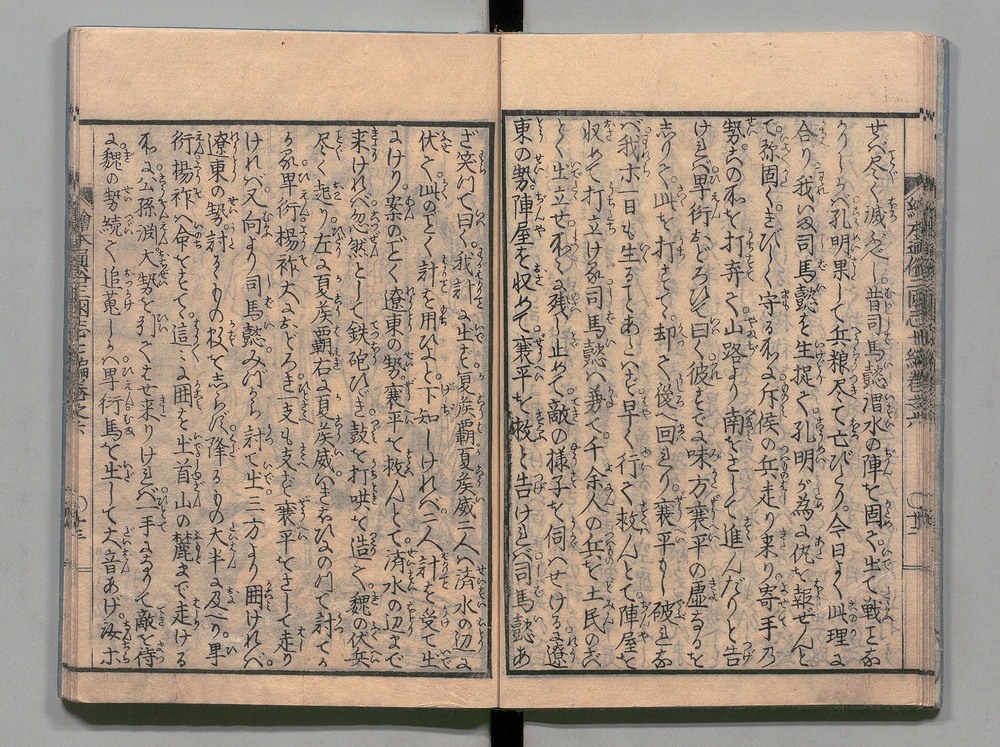 せバ尽く滅ぶべし昔司馬懿渭水の陣を固く出て戦をな
さゞりしかバ孔明果して兵粮尽て亡びたり今日よく此理に
合り我いま司馬懿を生捉て孔明が為に仇を報ぜんと
て弥固くきびしく守る所に斥候の兵走り来り寄手の
勢これの所を打弃て山路より南をさして進んだりと告
けれバ卑衍おどろひて曰彼もとより味方襄平の虚なるを
しりて此を打すてゝ却て後へ回れり襄平もし破れな
バ我ホ一日も生ることあたハじ早く行て救んとて陣屋を
収めて打立ける司馬懿ハ兼て千余人の兵を土民のごと
く出立せ所々に残し止めて敵の様子を伺ハせけるに遼
東の勢陣屋を収めて襄平を救と告けれバ司馬懿あ
ざ笑つて曰我計に出たり夏侯覇夏侯威二人ハ済水の辺に
伏して此のごとく計を用ひよと下知しけれバ二人計を受て出
にけり案のごとく遼東の勢襄平を救んとて済水の辺まで
来けれバ忽然として鉄砲ひゞき鼓を打哄を造て魏の伏兵
尽く起り左に夏侯覇右に夏侯威いきおひのつて討てか
かる卑衍楊祚大におどろき一支も支ず襄平をさして走り
けれバ又向より司馬懿みづから討て出三方より囲けれバ
遼東の勢討るゝもの数をしらず降るもの大半に及べり卑
衍楊祚ハ命をすてゝ這々に囲を出首山の麓まで走ける
所に公孫淵大勢を引てはせ来りけれバ一手になりて敵を待
に魏の勢続て追蒐しかバ卑衍馬を出して大音あげ汝ホ